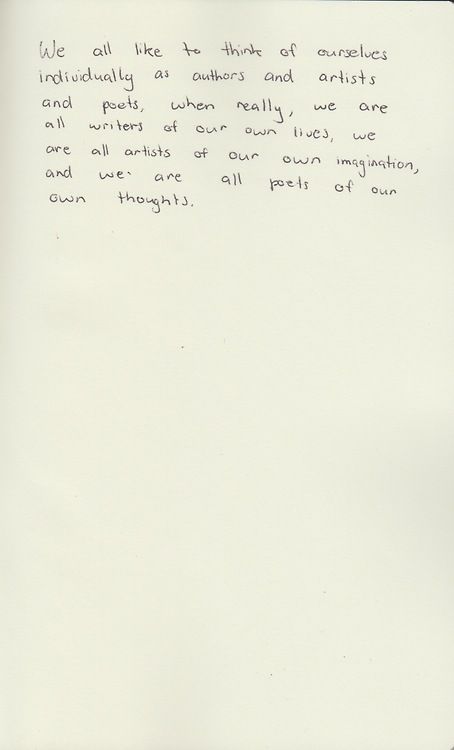 We all like to think of ourselves
individually as authors and artists
and poets, when really, we are
all writers of our own lives, we
are all artists of our own imagination,
and we are all poets of our
own thoughts.